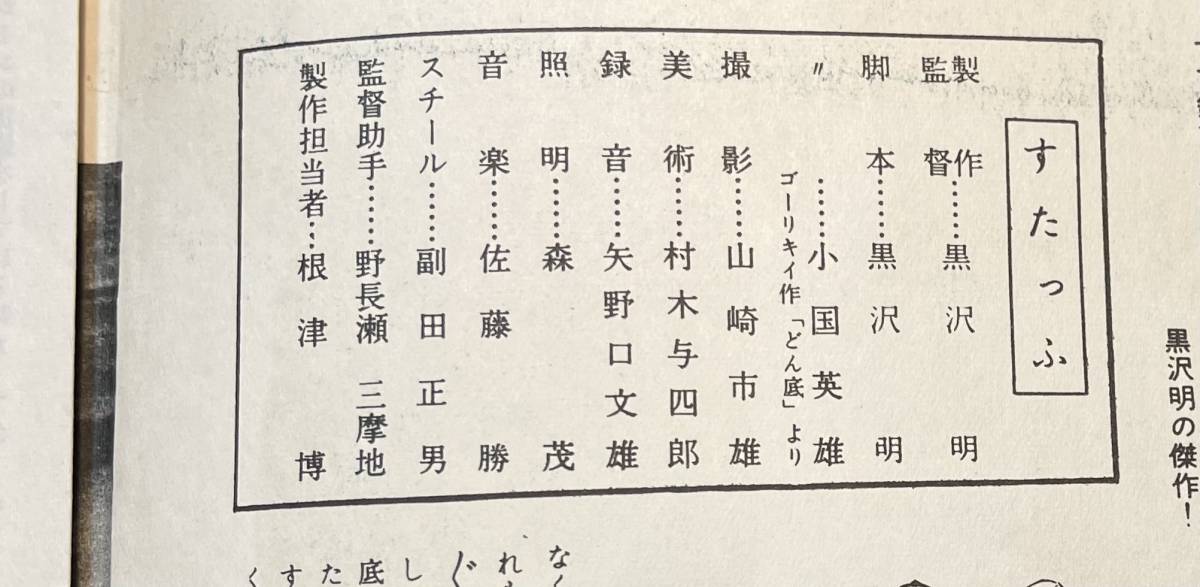 黒沢明の傑作！
すたっふ
製作
監督……黒沢明
脚本……黒沢明
〃……小国英雄
ゴーリキイ作「どん底」より
撮影……山崎市雄
美術……村木与四郎
録音……矢野口文雄
照明……森茂
音楽……佐藤勝
スチール……副田正男
監督助手……野長瀬三摩地
製作担当者…根津博
なく
れ
ぐ
し
底
た
す
く